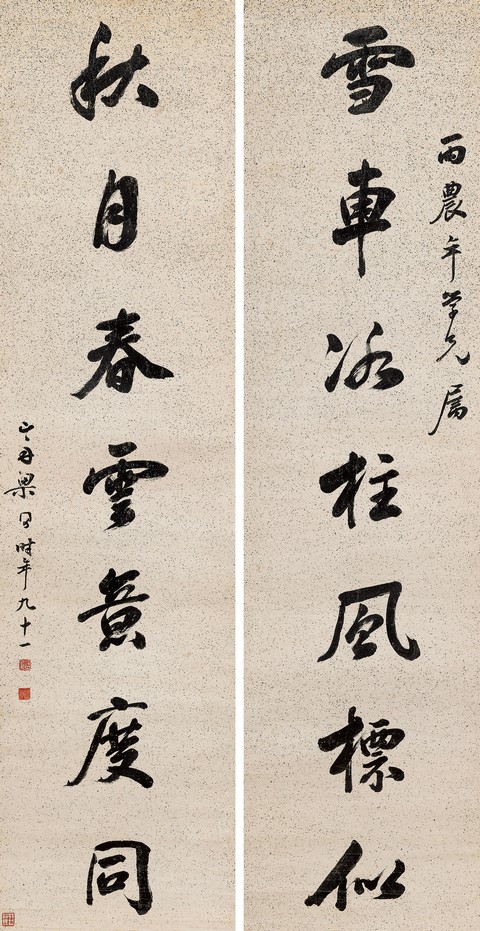 雨農年學兄屬
雪車冰柱風標似
秋月春雲意度同
山舟梁同書時年九十一